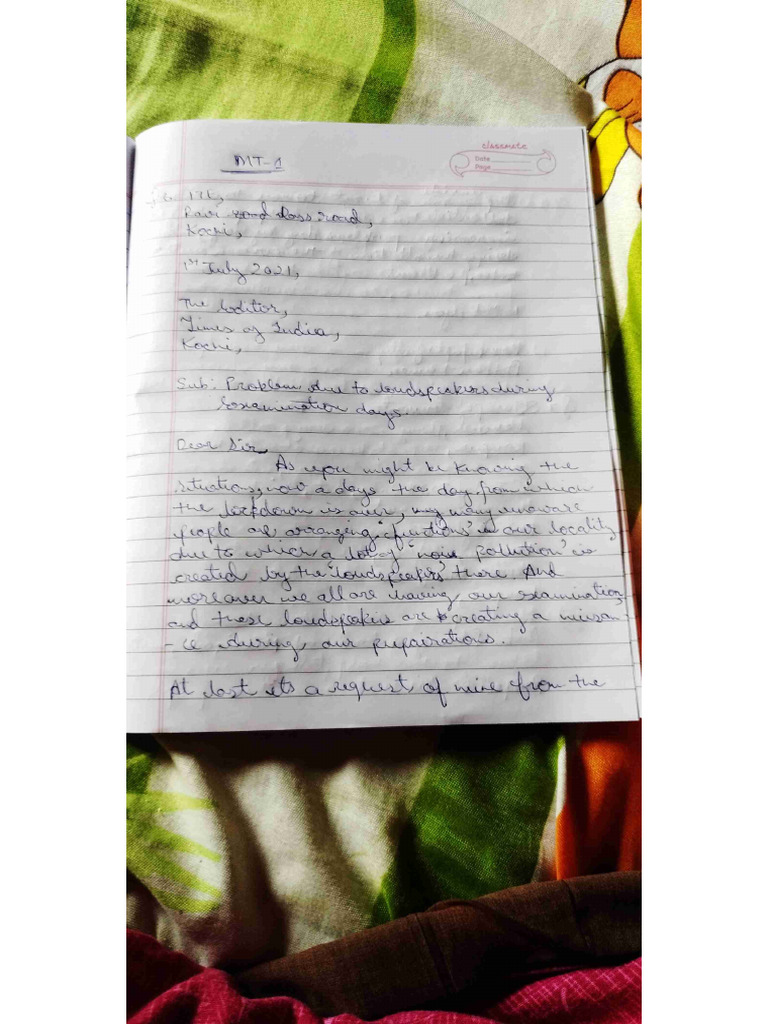 MT-1
classmate
Date
Page
176,
Ravi road dass road,
Kochi,
1st July 2021,
The Editor,
Times of India,
Kochi,
Sub: Problem due to loudspeakers during
Examination days.
Dear Sir,
As you might be knowing the
situations, now a days the day from which
the lockdown is over, many unaware
people are arranging 'functions' in our locality
due to which a lot of 'noise pollution' is
created by the 'loudspeakers' there. And
moreover we all are having our examination
and these loudspeakers are creating a nuisan-
-ce during our prepairations.
At last its a request of mine from the